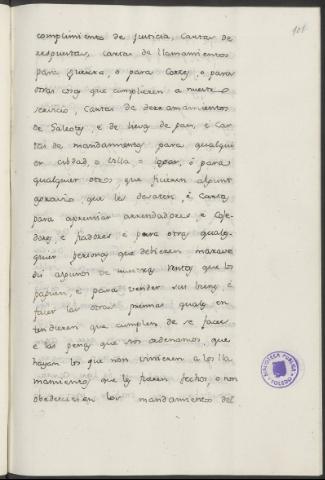 101
complimiento de justicia, Cartas de
respuestas, cartas de llamamientos
para guerra, o para Cortes, o para
otras cosas que cumplieren a nuestro
servicio, Cartas de derramamientos
de Galeotes, e de lieva de pan, e Car
tas de mandamiento para qualqui
er cibdad, o villa o logar, o para
qualquier otros, que ficieren algunt
agravio, que les desaten, e Cartas
para apremiar arrendadores, e Coje
dores, e fiadores e para otras quales
quier personas que debieren marave
dis algunos de nuestras rentas que los
paguen, e para vender sus bienes, e
facer las otras premias quales en
tendieren que cumplen de se facer
e las penas que nos ordenamos, que
hayan los que non vinieren a los lla
mamientos que les fueren fechos, o non
obedecieren los mandamientos del
BIBLIOTECA PUBLICA
TOLEDO